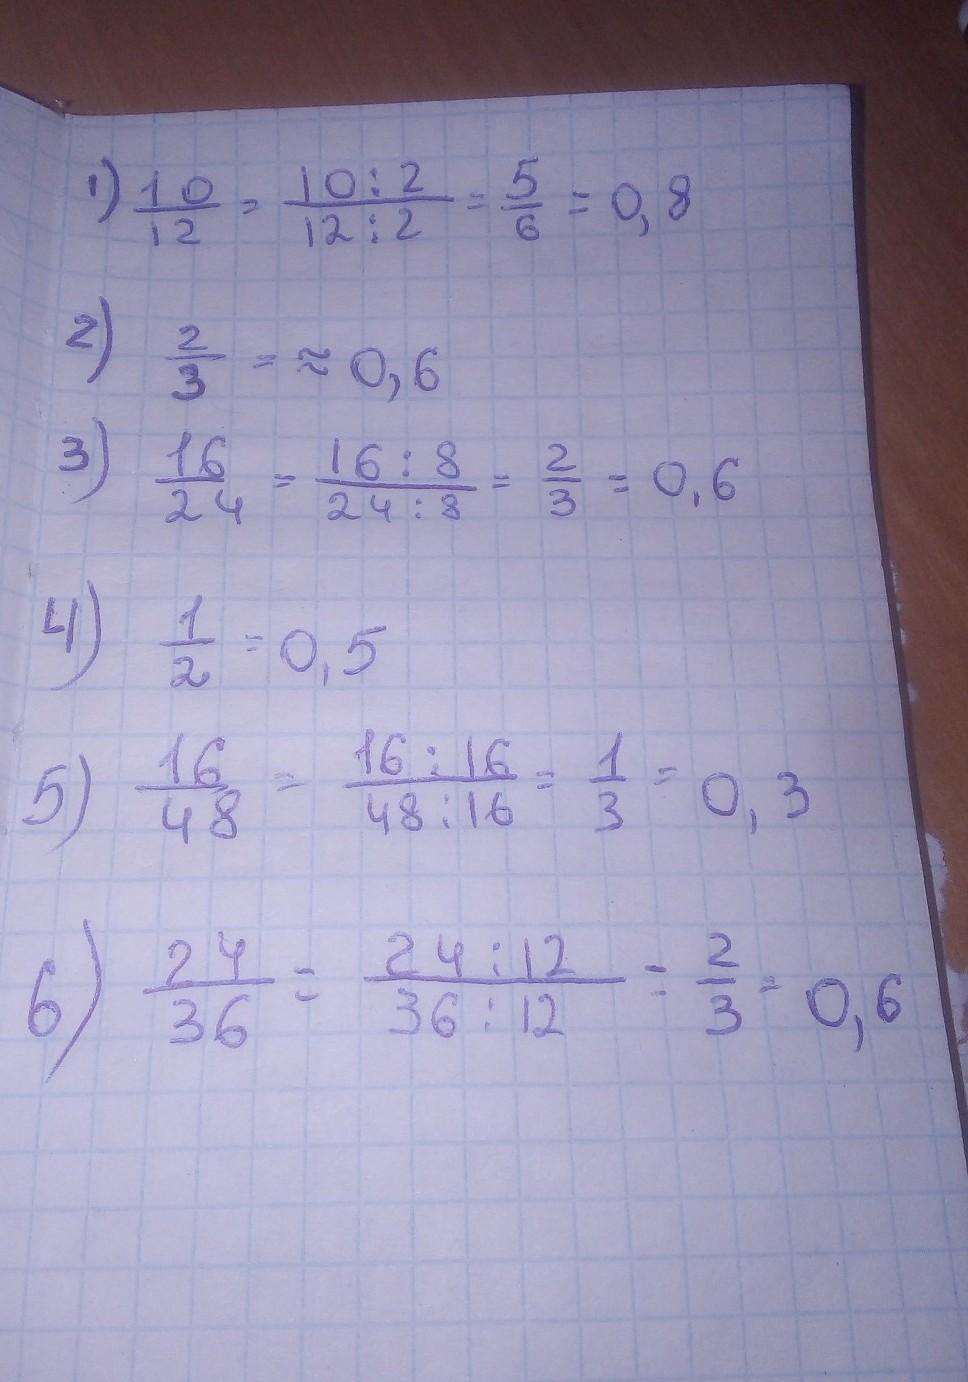 1) 10/12 = 10:2/12:2 = 5/6 = 0,8
2) 2/3 = ≈ 0,6
3) 16/24 = 16:8/24:8 = 2/3 = 0,6
4) 1/2 = 0,5
5) 16/48 = 16:16/48:16 = 1/3 = 0,3
6) 24/36 = 24:12/36:12 = 2/3 = 0,6